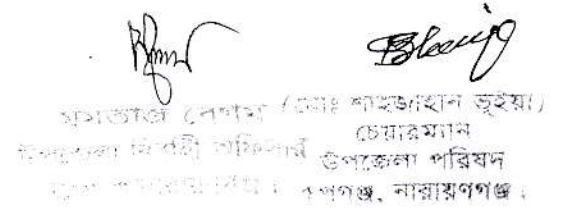 মমতাজ বেগম
উপজেলা নির্বাহী অফিসার
(মোঃ শাহজাহান ভূইয়া)
চেয়ারম্যান
উপজেলা পরিষদ
রূপগঞ্জ, নারায়ণগঞ্জ।